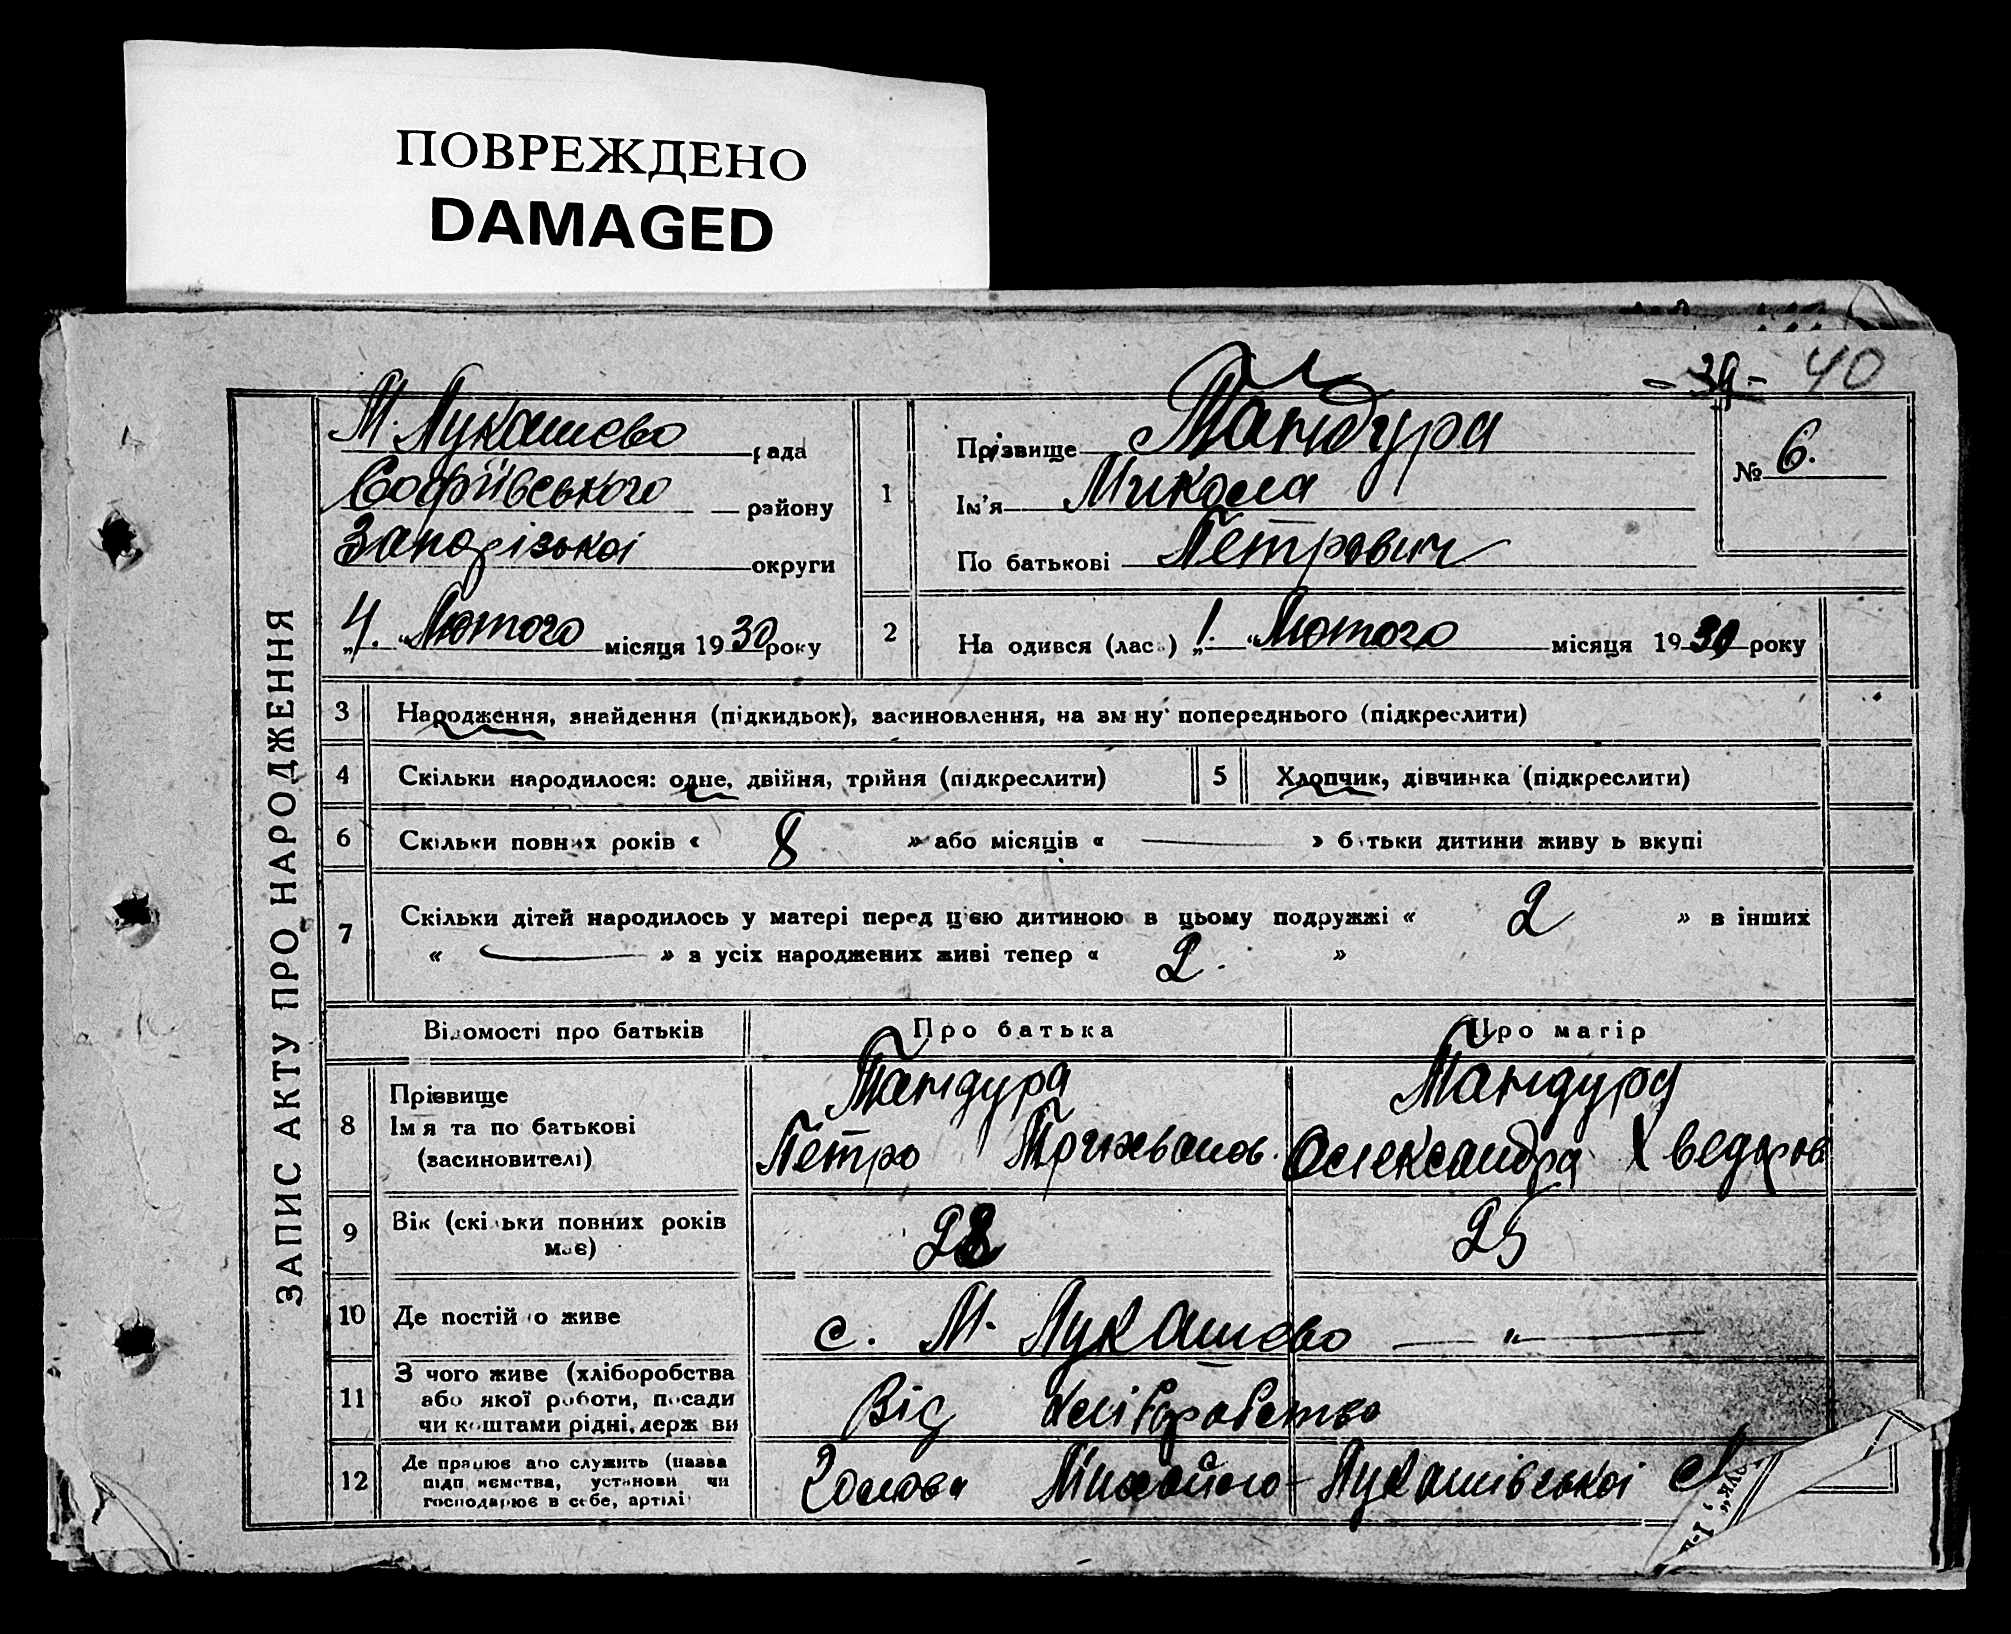 ПОВРЕЖДЕНО
DAMAGED
- 39 - 40
М. Лукашево рада
Софіївського району
Запорізької округи
„4." Лютого місяця 1930 року
1
Прізвище
Ім'я Микола
По батькові Петрович
№ 6.
2
На одився (лас ) „1." Лютого місяця 1930 року
ЗАПИС АКТУ ПРО НАРОДЖЕННЯ
3 Народження, знайдення (підкидьок), засиновлення, на зм ну попереднього (підкреслити)
4 Скільки народилося: одне, двійня, трійня (підкреслити)
5 Хлопчик, дівчинка (підкреслити)
6 Скільки повних років « 8 » або місяців « — » б тьки дитини живу ь вкупі
7 Скільки дітей народилось у матері перед цією дитиною в цьому подружжі « 2 » в інших
« — » а усіх народжених живі тепер « 2. »
Відомості про батьків
Про батька
Про матір
8 Прізвище
Ім я та по батькові
(засиновителі)
Петро
Олександра Хведоров
9 Вік (скі ьки повних років
має)
28
25
10 Де постій о живе
с. М. Лукашево — " —
11 З чого живе (хліборобства
або якої роботи, посади
чи коштами рідні, держ ви
Від хліборобства
12 Де працює або служить (назва
підп иємства, установи чи
господарює в себе, артілі
Голова Михайло-Лукашівської с